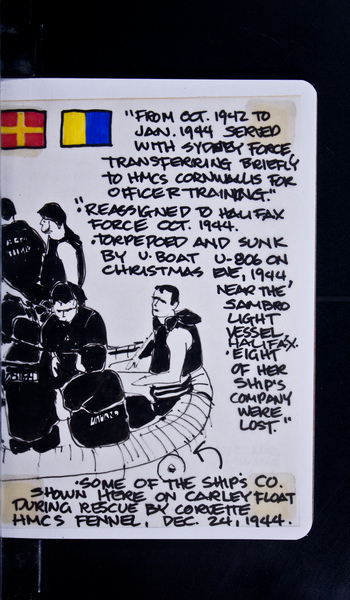 "FROM OCT. 1942 TO
JAN. 1944 SERVED
WITH SYDNEY FORCE,
TRANSFERRING BRIEFLY
TO HMCS CORNWALLIS FOR
OFFICER TRAINING."
"REASSIGNED TO HALIFAX
FORCE OCT. 1944.
"TORPEDOED AND SUNK
BY U-BOAT U-806 ON
CHRISTMAS EVE, 1944,
NEAR THE
SAMBRO
LIGHT
VESSEL,
HALIFAX.
"EIGHT
OF HER
SHIP'S
COMPANY
WERE
LOST."
"SOME OF THE SHIP'S CO.
SHOWN HERE ON CARLEY FLOAT
DURING RESCUE BY CORVETTE
HMCS FENNEL, DEC. 24, 1944.